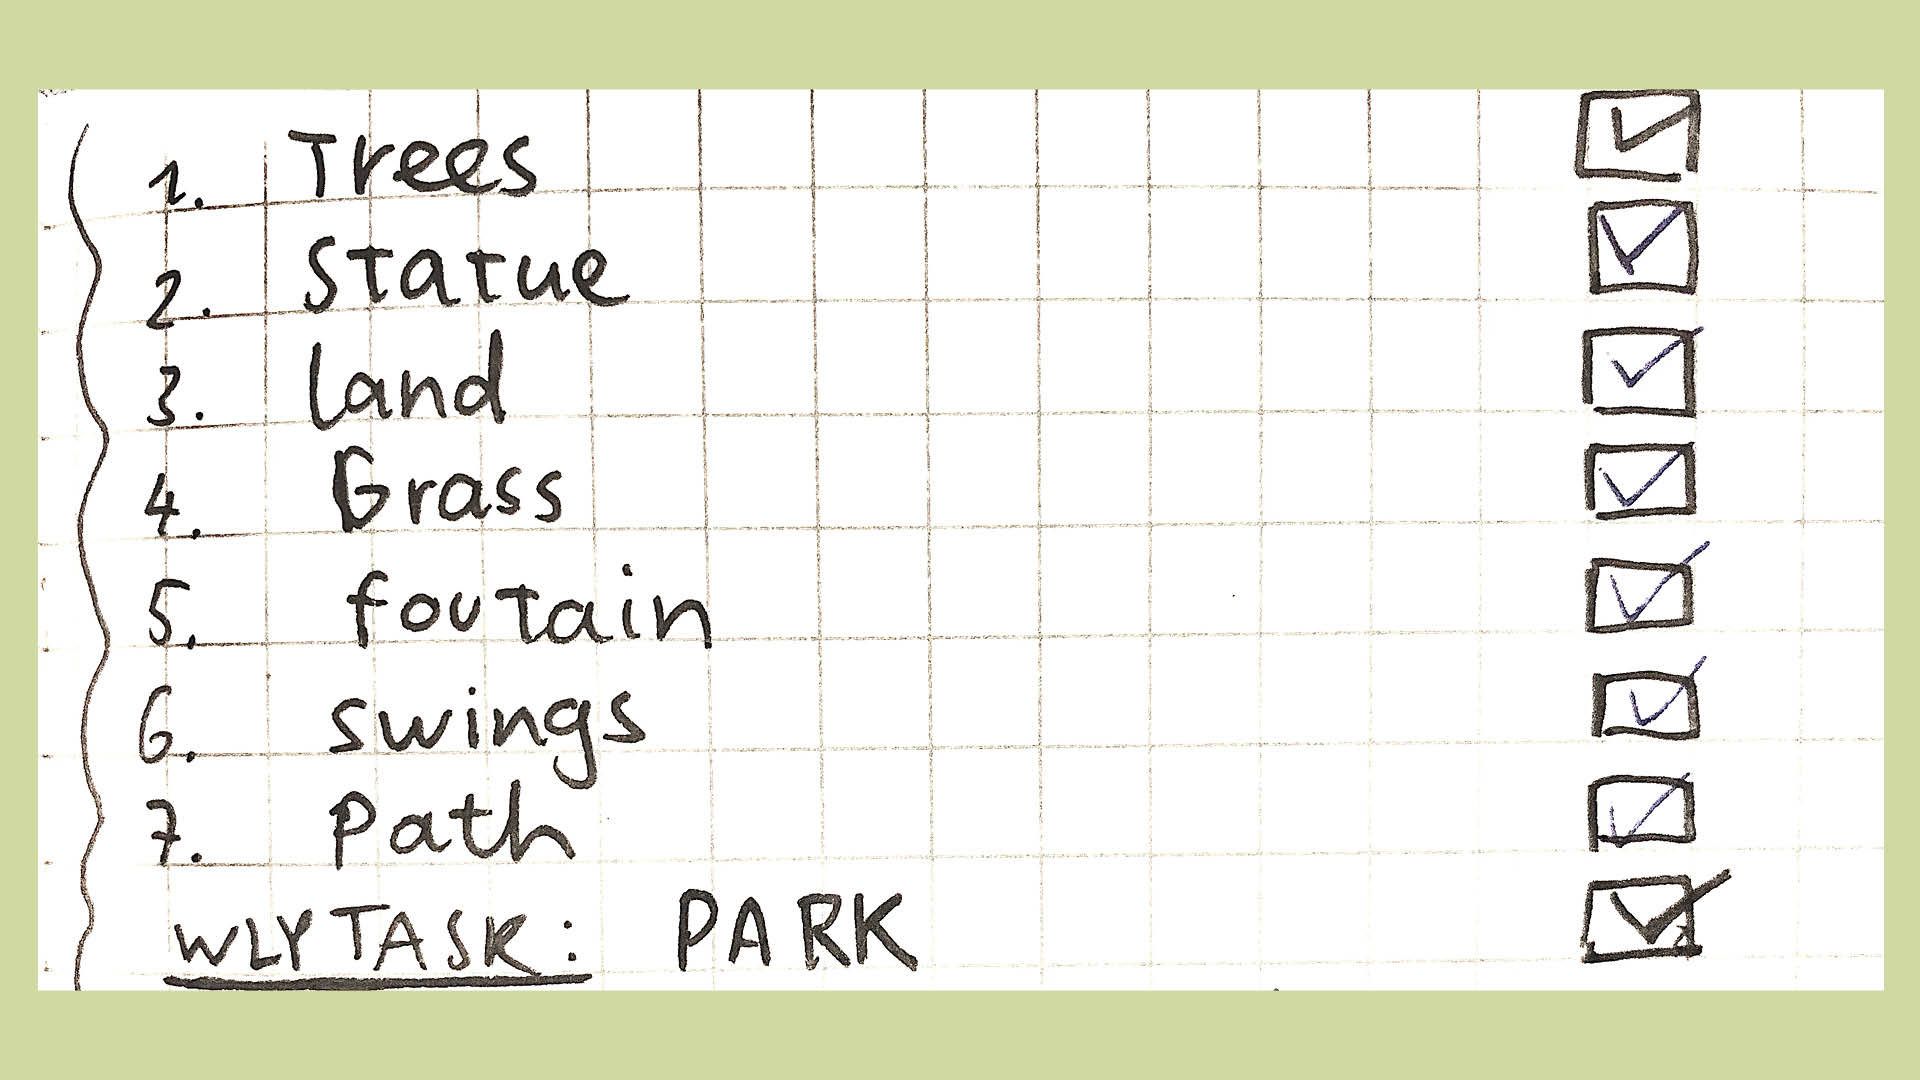 1. Trees
2. Statue
3. land
4. Grass
5. foutain
6. swings
7. Path
WLY TASK: PARK